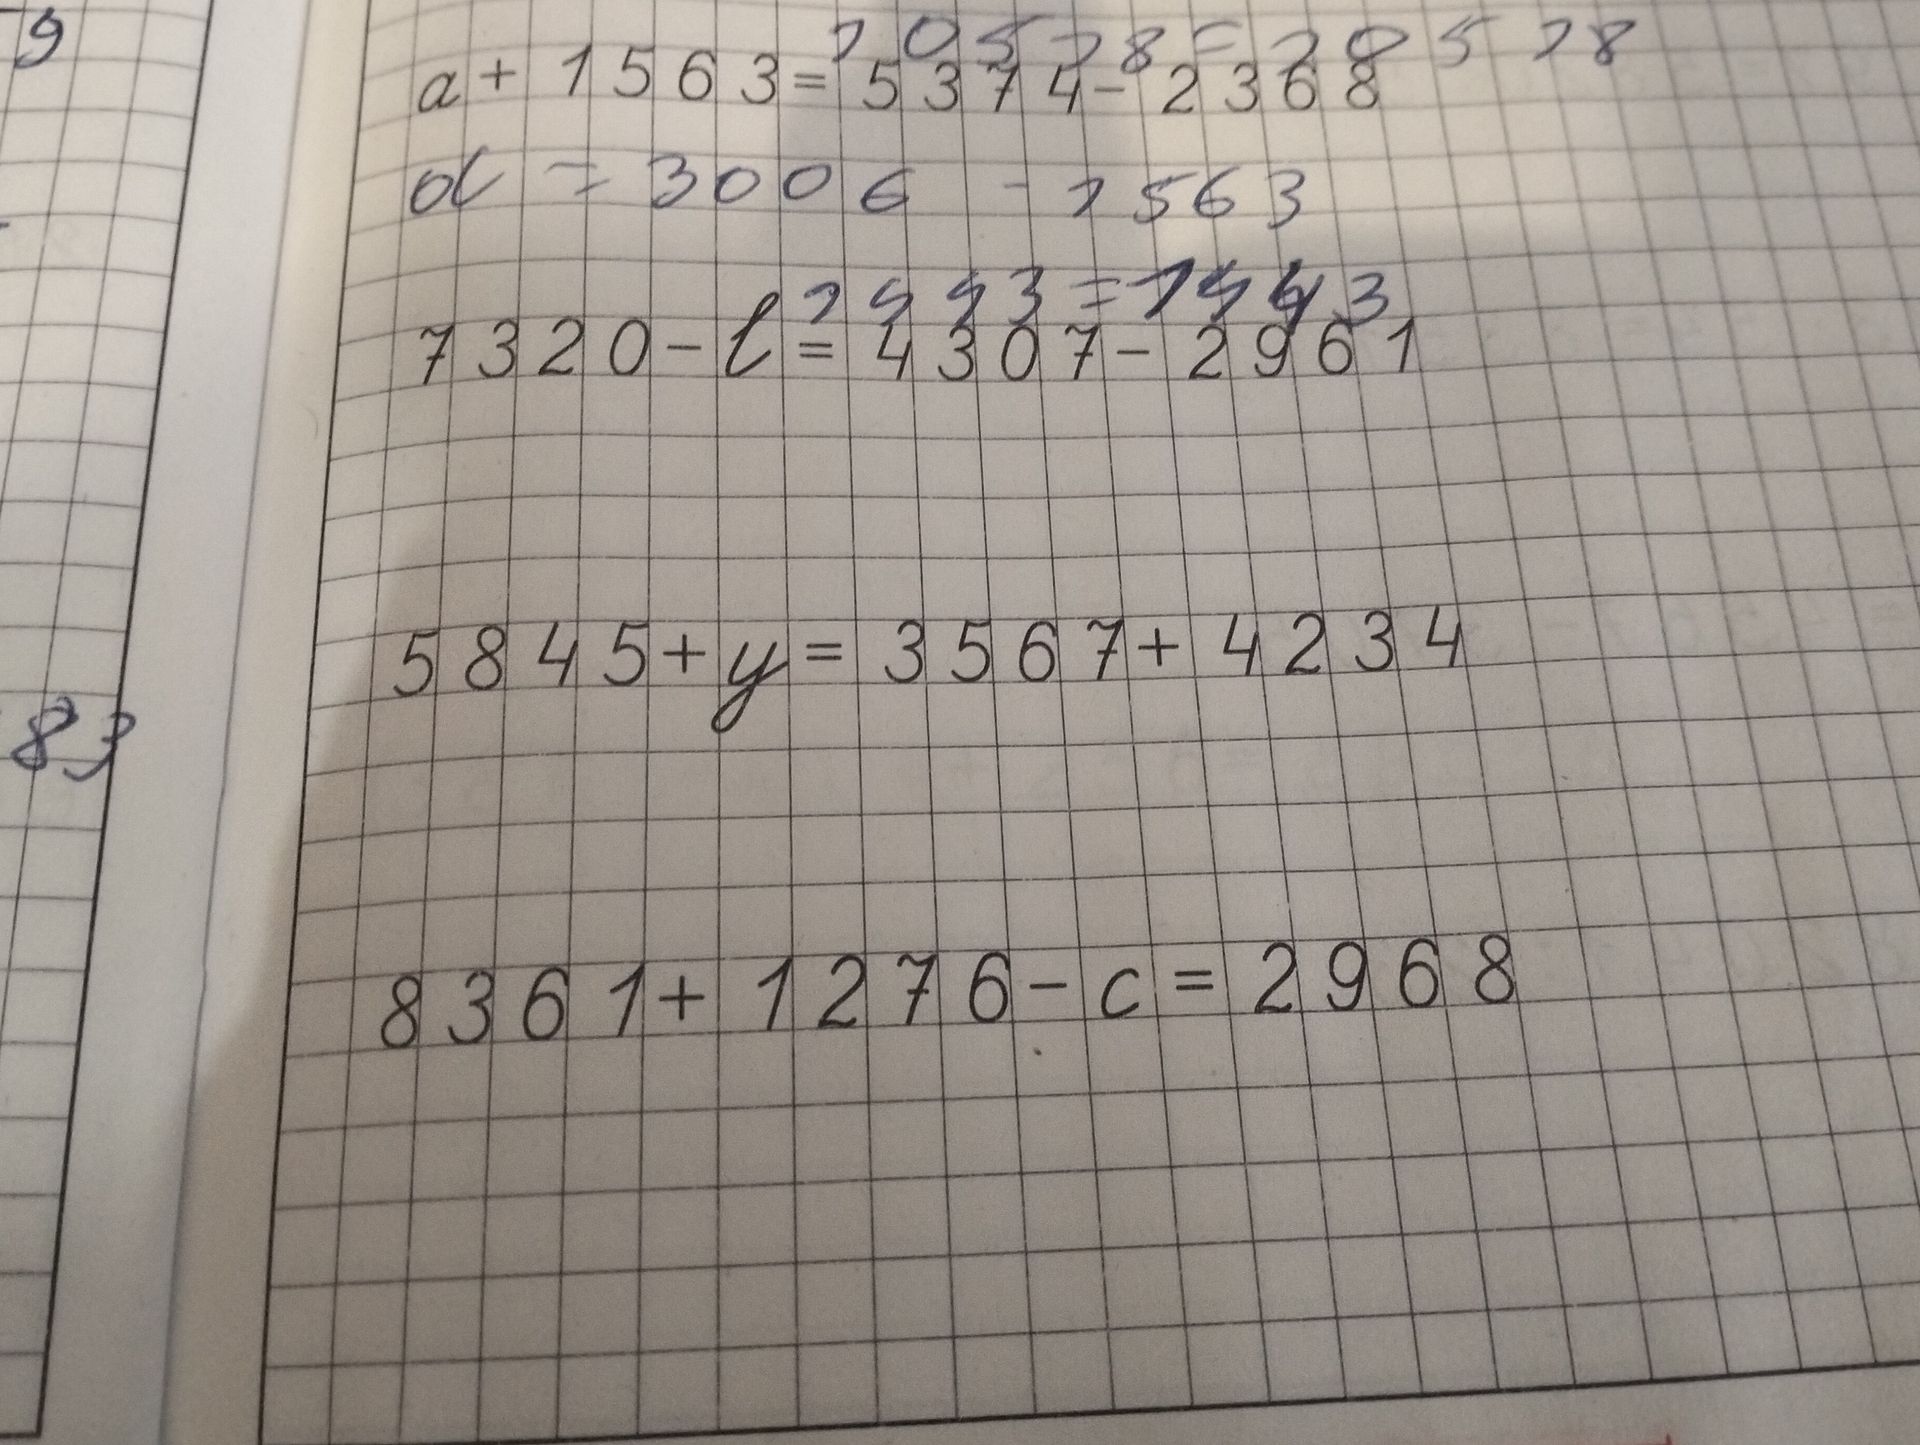 9
10518=28518
a+1563=5374-2368
a = 3006 - 1563
1443=1443
7320-l=4307-2961
5845+y=3567+4234
83
8361+1276-c=2968